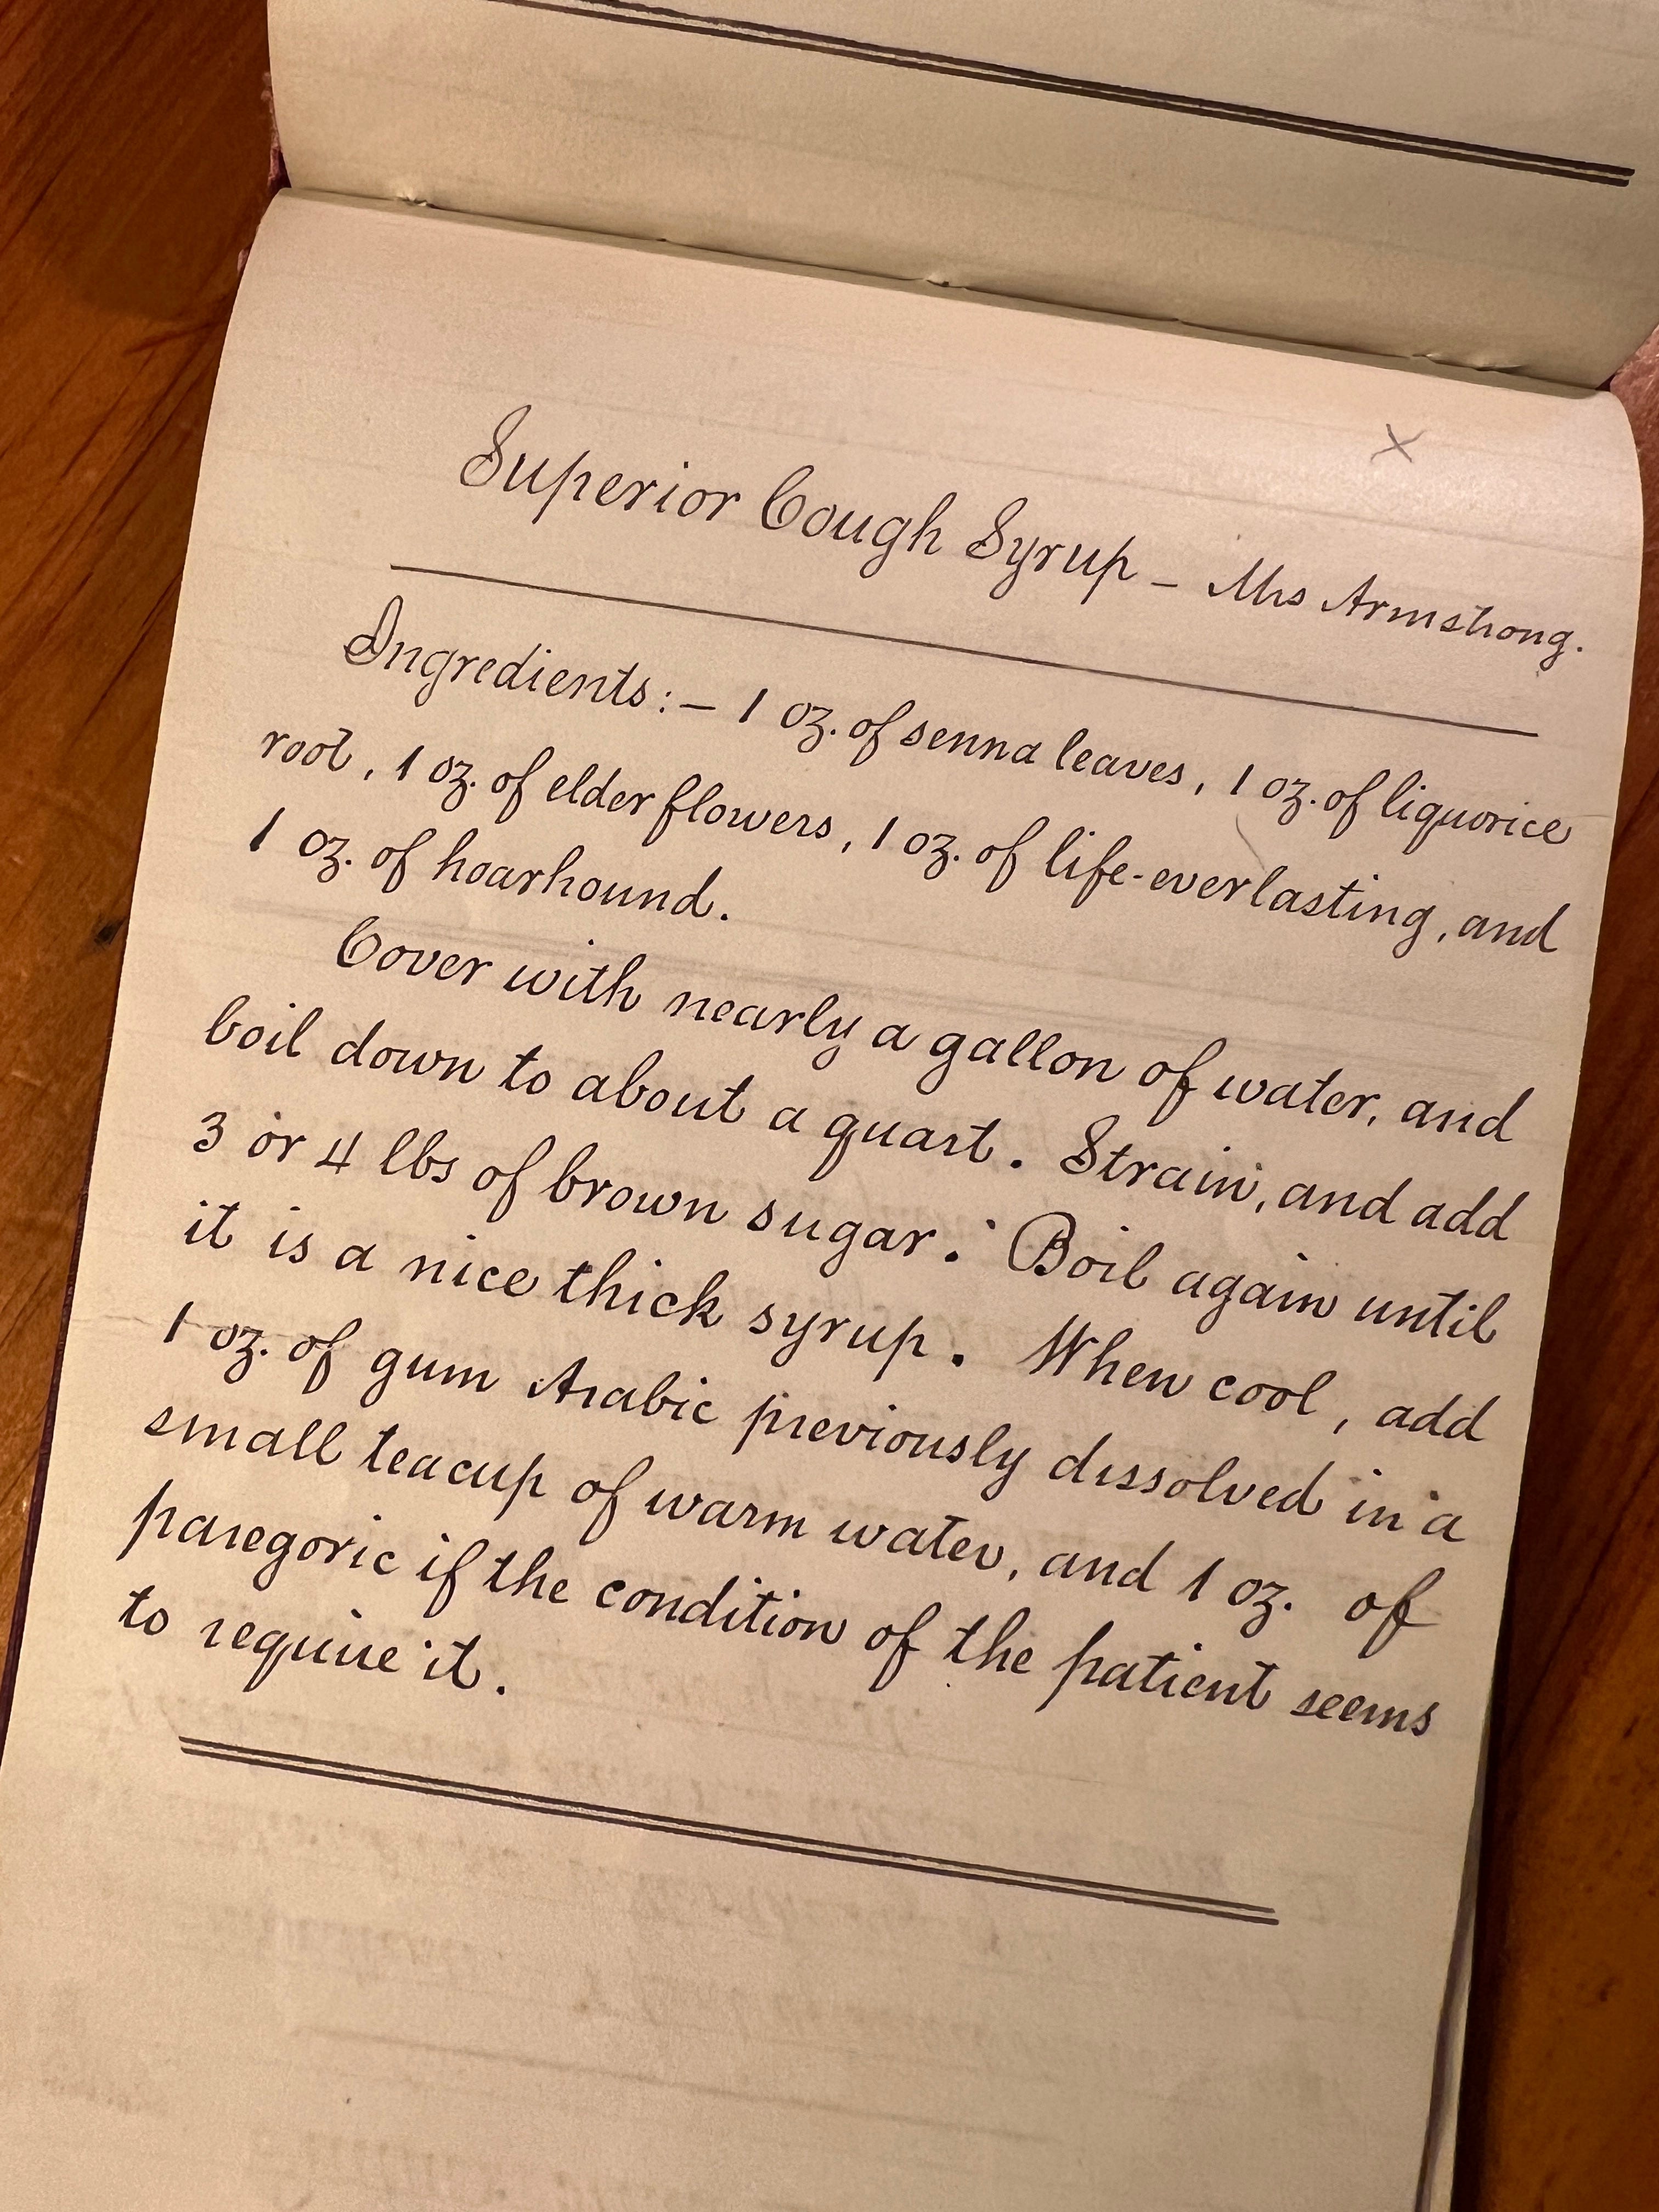 Superior Cough Syrup – Mrs Armstrong.
Ingredients:– 1 oz. of senna leaves, 1 oz. of liquorice
root, 1 oz. of elder flowers, 1 oz. of life-everlasting, and
1 oz. of hoarhound.
Cover with nearly a gallon of water, and
boil down to about a quart. Strain, and add
3 or 4 lbs of brown sugar. Boil again until
it is a nice thick syrup. When cool, add
1 oz. of gum Arabic previously dissolved in a
small teacup of warm water, and 1 oz. of
paregoric if the condition of the patient seems
to require it.